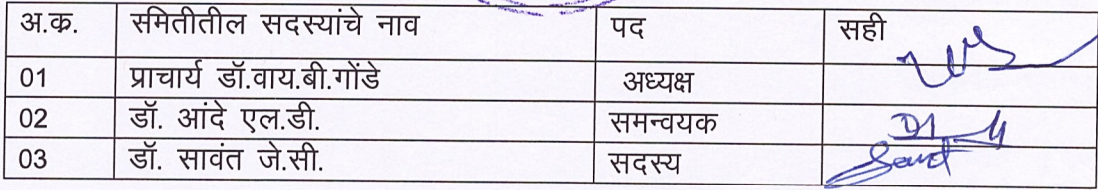 अ.क्र. समितीतील सदस्यांचे नाव पद सही
01 प्राचार्य डॉ.वाय.बी.गोंडे अध्यक्ष
02 डॉ. आंदे एल.डी. समन्वयक
03 डॉ. सावंत जे.सी. सदस्य